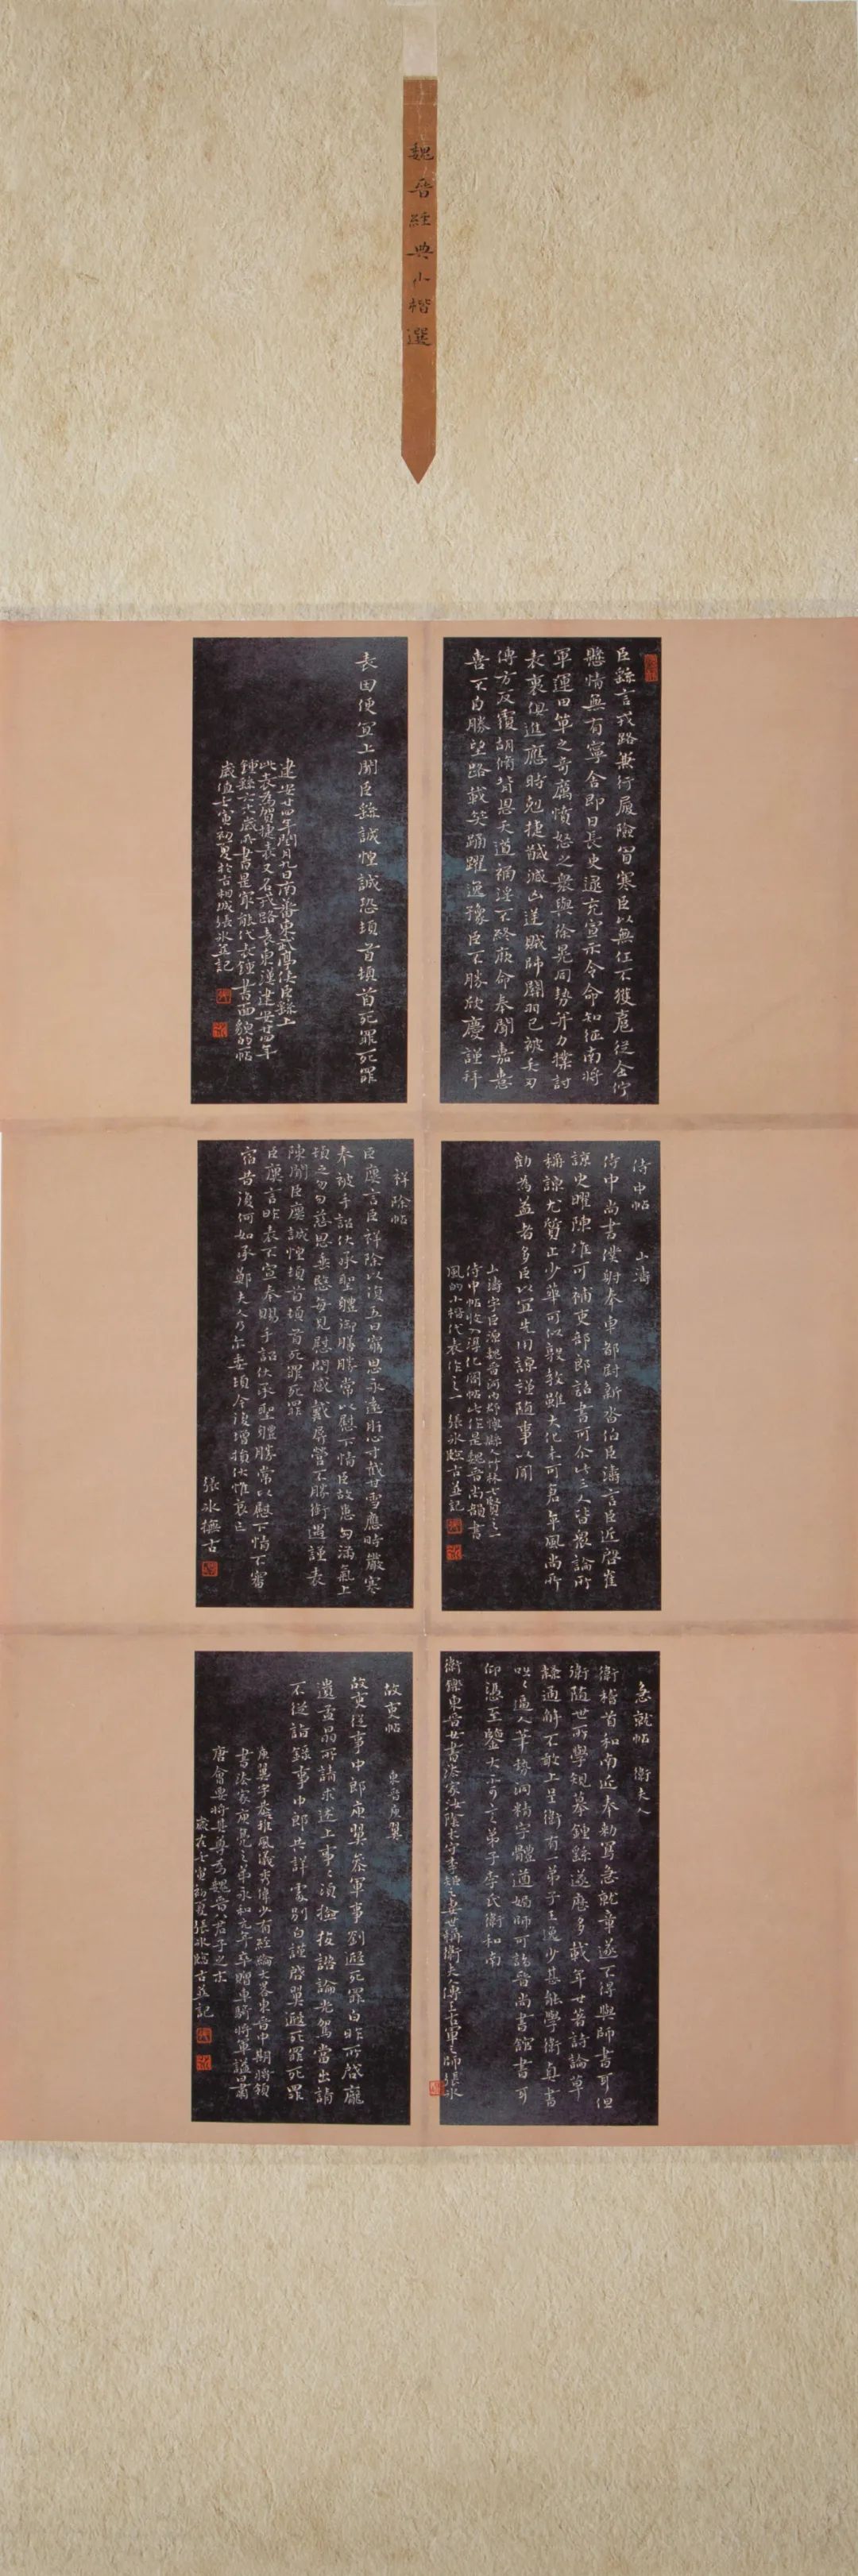 魏晉經典小楷選
臣繇言戎路兼行履險冒寒臣以無任不獲扈從企佇
懸情無有寧舍即日長史逯充宣示令命知征南將
軍運田單之奇厲憤怒之眾與徐晃同勢并力撲討
表裏俱進應時剋捷馘滅凶逆賊帥關羽已被矢刃
傅方反覆胡脩背恩天道禍淫不終厥命奉聞嘉憙
喜不自勝望路載笑踊躍逸豫臣不勝欣慶謹拜
表因便宜上聞臣繇誠惶誠恐頓首頓首死罪死罪
建安廿四年閏月九日南蕃東武亭侯臣繇上
此表為賀捷表又名戎路表東漢建安廿四年
鍾繇六十八歲所書是最能代表鍾書面貌的帖
歲值壬寅初夏於古相城張冰並記
侍中帖 山濤
侍中尚書僕射奉車都尉新沓伯臣濤言臣近啓崔
諒史曜陳准可補吏部郎詔書可尒此三人皆眾論所
稱諒尤質正少華可以敦教雖大化未可倉卒風尚所
勸為益者多臣以宜先用諒謹隨事以聞
山濤字巨源魏晉河內郡懷縣人竹林七賢之一
侍中帖收入淳化閣帖此作是魏晉尚韻書
風的小楷代表作之一 張冰臨古並記
祥除帖
臣廞言臣祥除以復五日窮思永遠肝心寸截甘雪應時嚴寒
奉被手詔伏承聖體御膳勝常以慰下情臣故患匈滿氣上
頓乏勿勿慈恩垂愍每見慰問感戴屏營不勝銜遇謹表
陳聞臣廞誠惶頓首頓首死罪死罪
臣廞言昨表不宣奉賜手詔伏承聖體勝常以慰下情不審
宿昔復何如承鄭夫人乃尒委頓今復增損伏惟哀亡
張冰撫古
急就帖 衛夫人
衛稽首和南近奉勅寫急就章遂不得與師書耳但
衛隨世所學規摹鍾繇遂歷多載年廿著詩論草
隸通解不敢上呈衛有一弟子王逸少甚能學衛真書
咄咄逼人筆勢洞精字體遒媚師可詣晉尚書館書耳
仰憑至鑒大不可言弟子李氏衛和南
衛鑠東晉女書法家汝陰太守李矩之妻世稱衛夫人傳王右軍之師張冰
故吏帖 東晉庾翼
故吏從事中郎庾翼參軍事劉遐死罪白昨所啓龐
遺孟晶所請求述上事上事須撿校諮論光駕當出請
不從詣錄事中郎共詳處別白謹啓翼遐死罪死罪
庾翼字稚恭風儀秀偉少有經綸大略東晉中期將領
書法家庾亮之弟永和元年卒贈車騎將軍謚曰肅
唐會要將其尊為魏晉八君子之末
歲在壬寅初夏張冰臨古並記